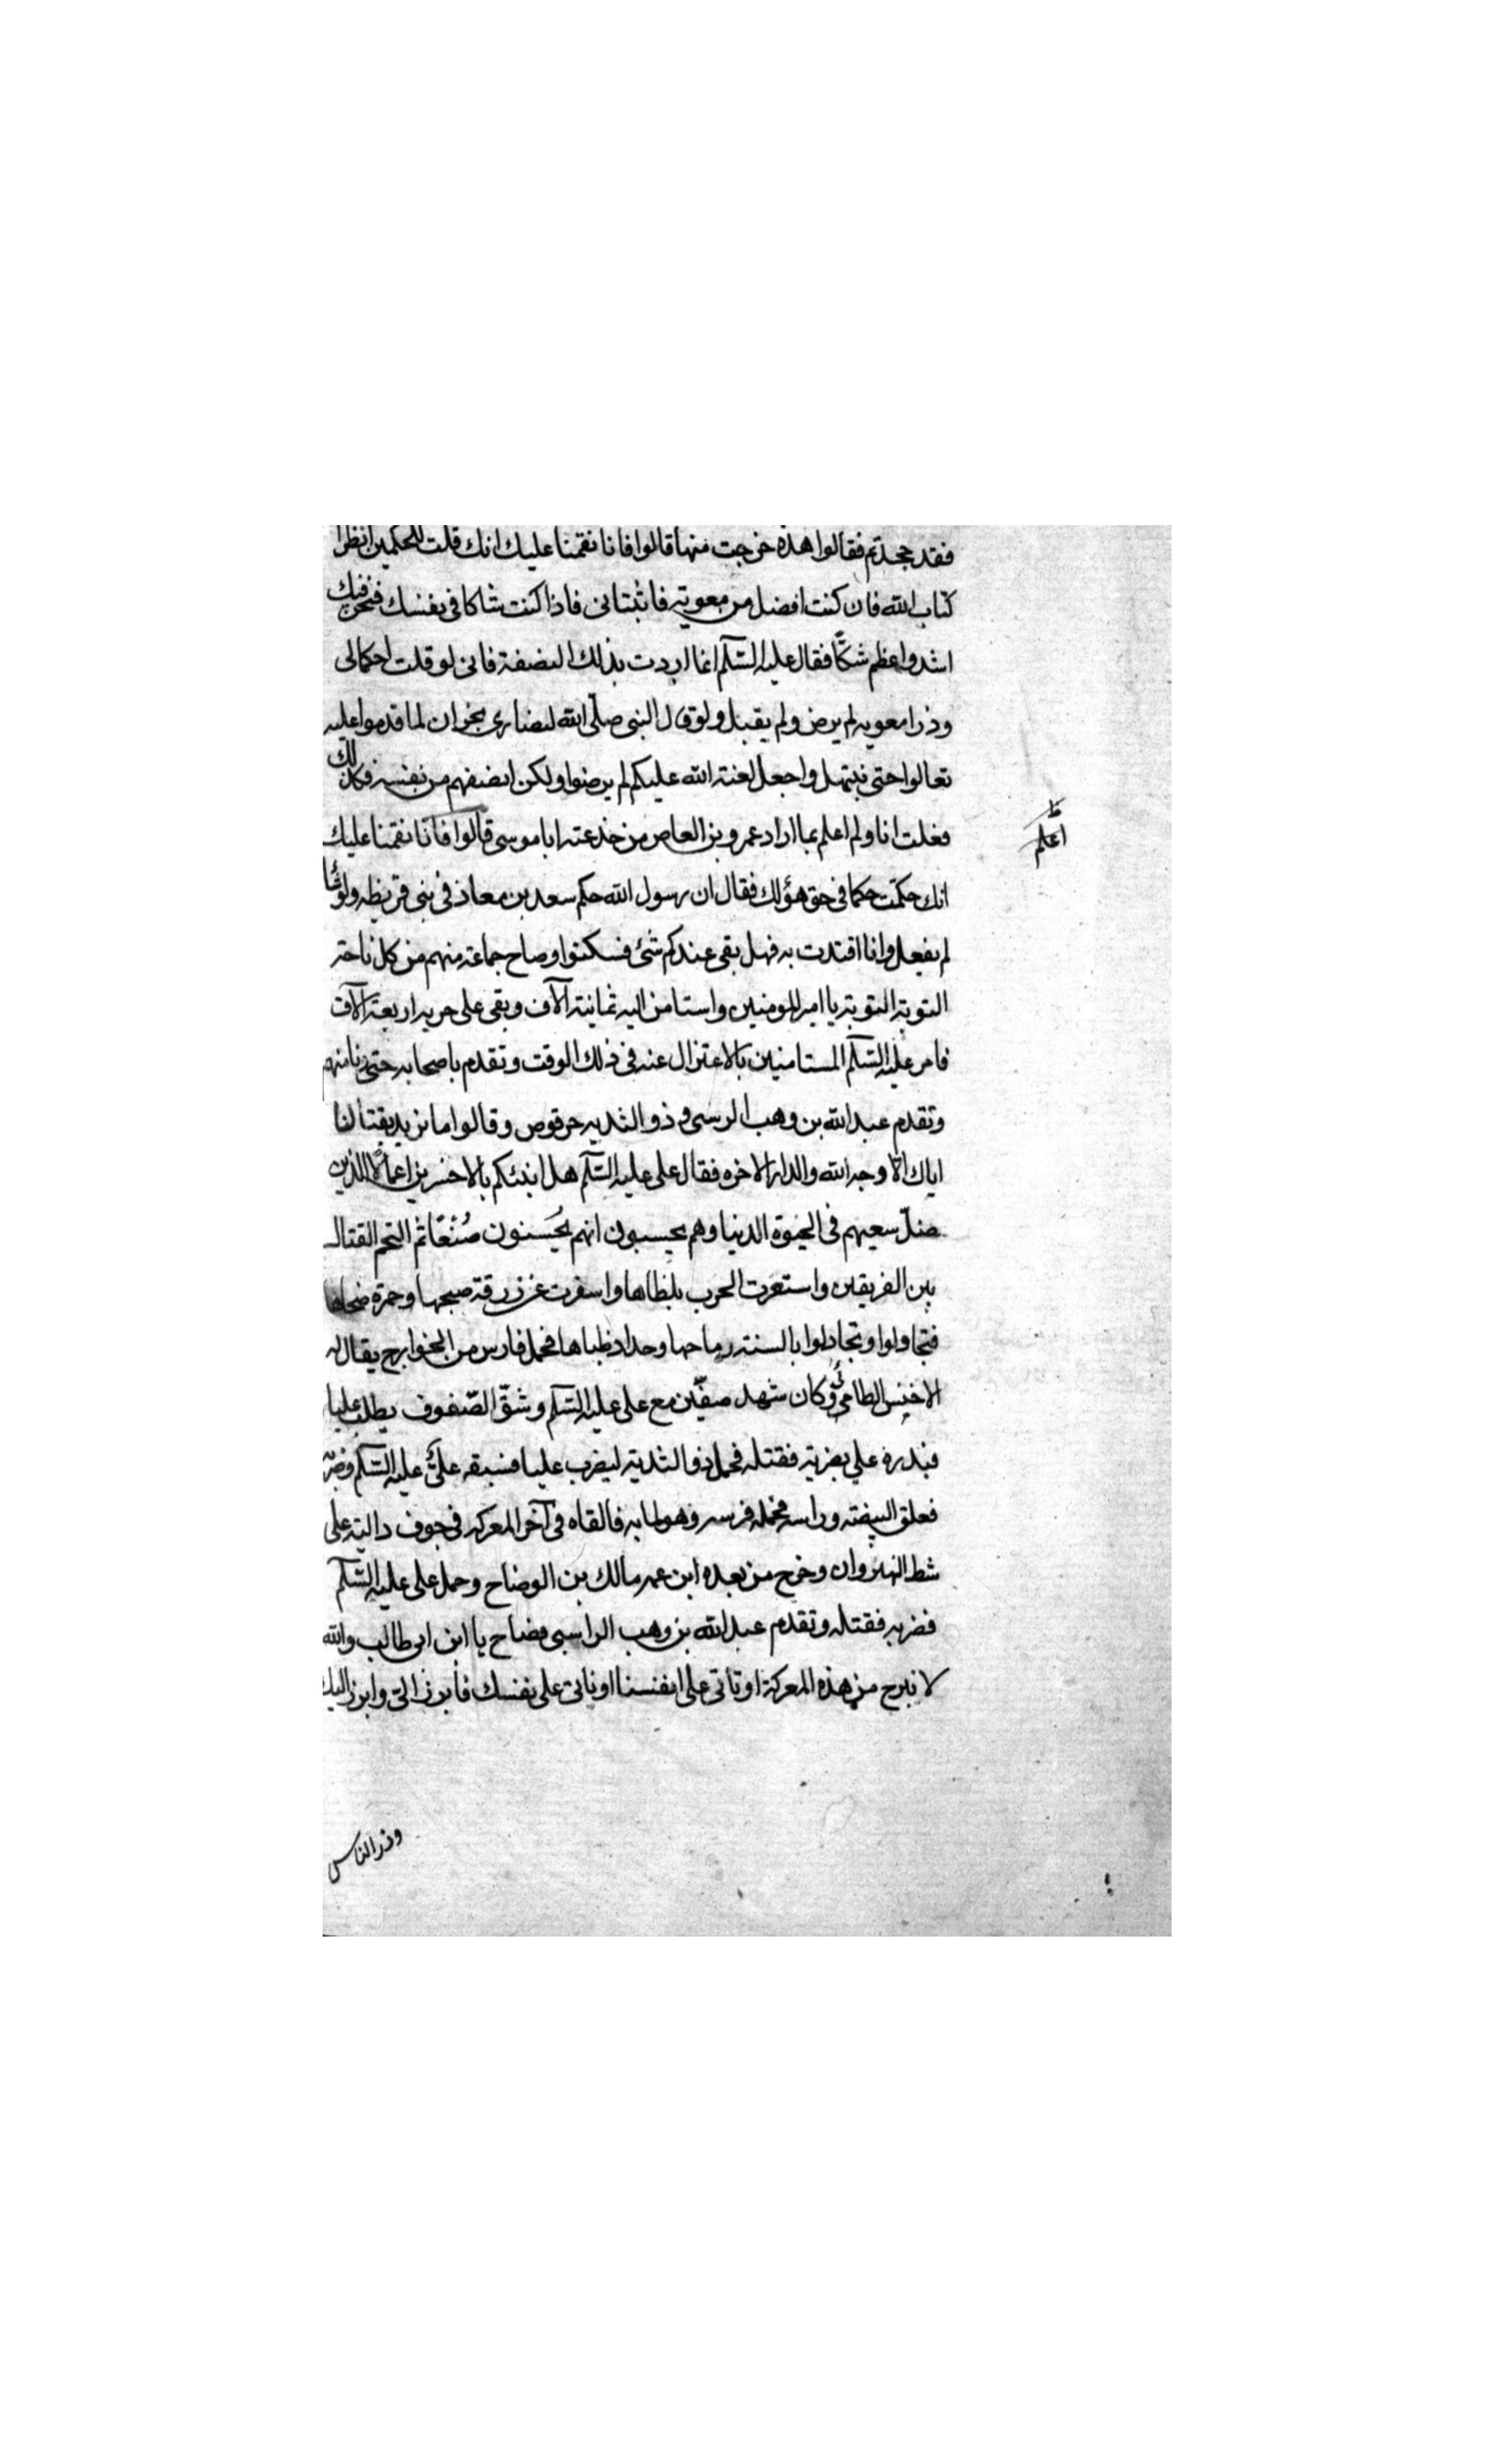 فقد جحدتم فقالوا هذه خرجت منها قالوا فانا نقمنا عليك انك قلت للحكمين انظرا
كتاب الله فان كنت افضل من معوية فاثبتانى فاذا كنت شاكا فى نفسك فنحن فيك
اشد واعظم شكًا فقال عليه السّلم انما اردت بذلك النصفة فانى لو قلت احكما لى
وذرا معويه لم يرض ولم يقبل ولو قال النبى صلّى الله لنصارى نجران لما قدموا عليه
تعالوا حتى نبتهل واجعل لعنة الله عليكم لم يرضوا ولكن انصفهم من نفسه فكذلك
فعلت انا ولم اعلم بما اراد عمرو بن العاص من خدعته ابا موسى قالوا فانّا نقمنا عليك
اعلم
انك حكمت حكما فى حق هو لك فقال ان رسول الله حكم سعد بن معاذ فى بنى قريظه ولو شا
لم يفعل وانا اقتديت به فهل بقى عندكم شئ فسكتوا وصاح جماعة منهم من كل ناحية
التوبة التوبة يا امير المومنين واستامن اليه ثمانية الآف وبقى على حربه اربعة الآف
فامر عليه السّلم المستامنين بالاعتزال عنه فى ذلك الوقت وتقدم باصحابه حتى دنا منهم
وتقدم عبد الله بن وهب الرسى و ذو الثديه حرقوص وقالوا ما نريد بقتالنا
اياك الّا وجه الله والدار الاخره فقال على عليه السّلم هل انبئكم بالاخسرين اعمالًا الذين
ضلّ سعيهم فى الحيوة الدنيا وهم يحسبون انهم يُحسنون صُنعًا ثم التحم القتال
بين الفريقين واستعرت الحرب بلظاها واسفرت عن زرقة صبحها وحمرة ضحاها
فتجاولوا وتجادلوا بالسنة رماحها وحداد ظباها فحمل فارس من الخوارج يقال له
الاخنس الطامى وكان شهد صفّين مع على عليه السّلم وشقّ الصّفوف يطلب عليا
فبدره علي بضربة فقتله فحمل ذو الثدية ليضرب عليا فسبقه علىّ عليه السّلم وضربه
ففلق البيضة وراسه فحمله فرسه وهو لما به فالقاه فى آخر المعركه فى جوف دالية على
شط النهروان وخرج من بعده ابن عمه مالك بن الوضاح وحمل على على عليه السّلم
فضربه فقتله وتقدم عبد الله بن وهب الراسبى فصاح يا ابن ابى طالب والله
لا نبرح من هذه المعركة او تاتى على انفسنا او ناتى على نفسك فابرز الىّ وابرز اليك
وذر الناس